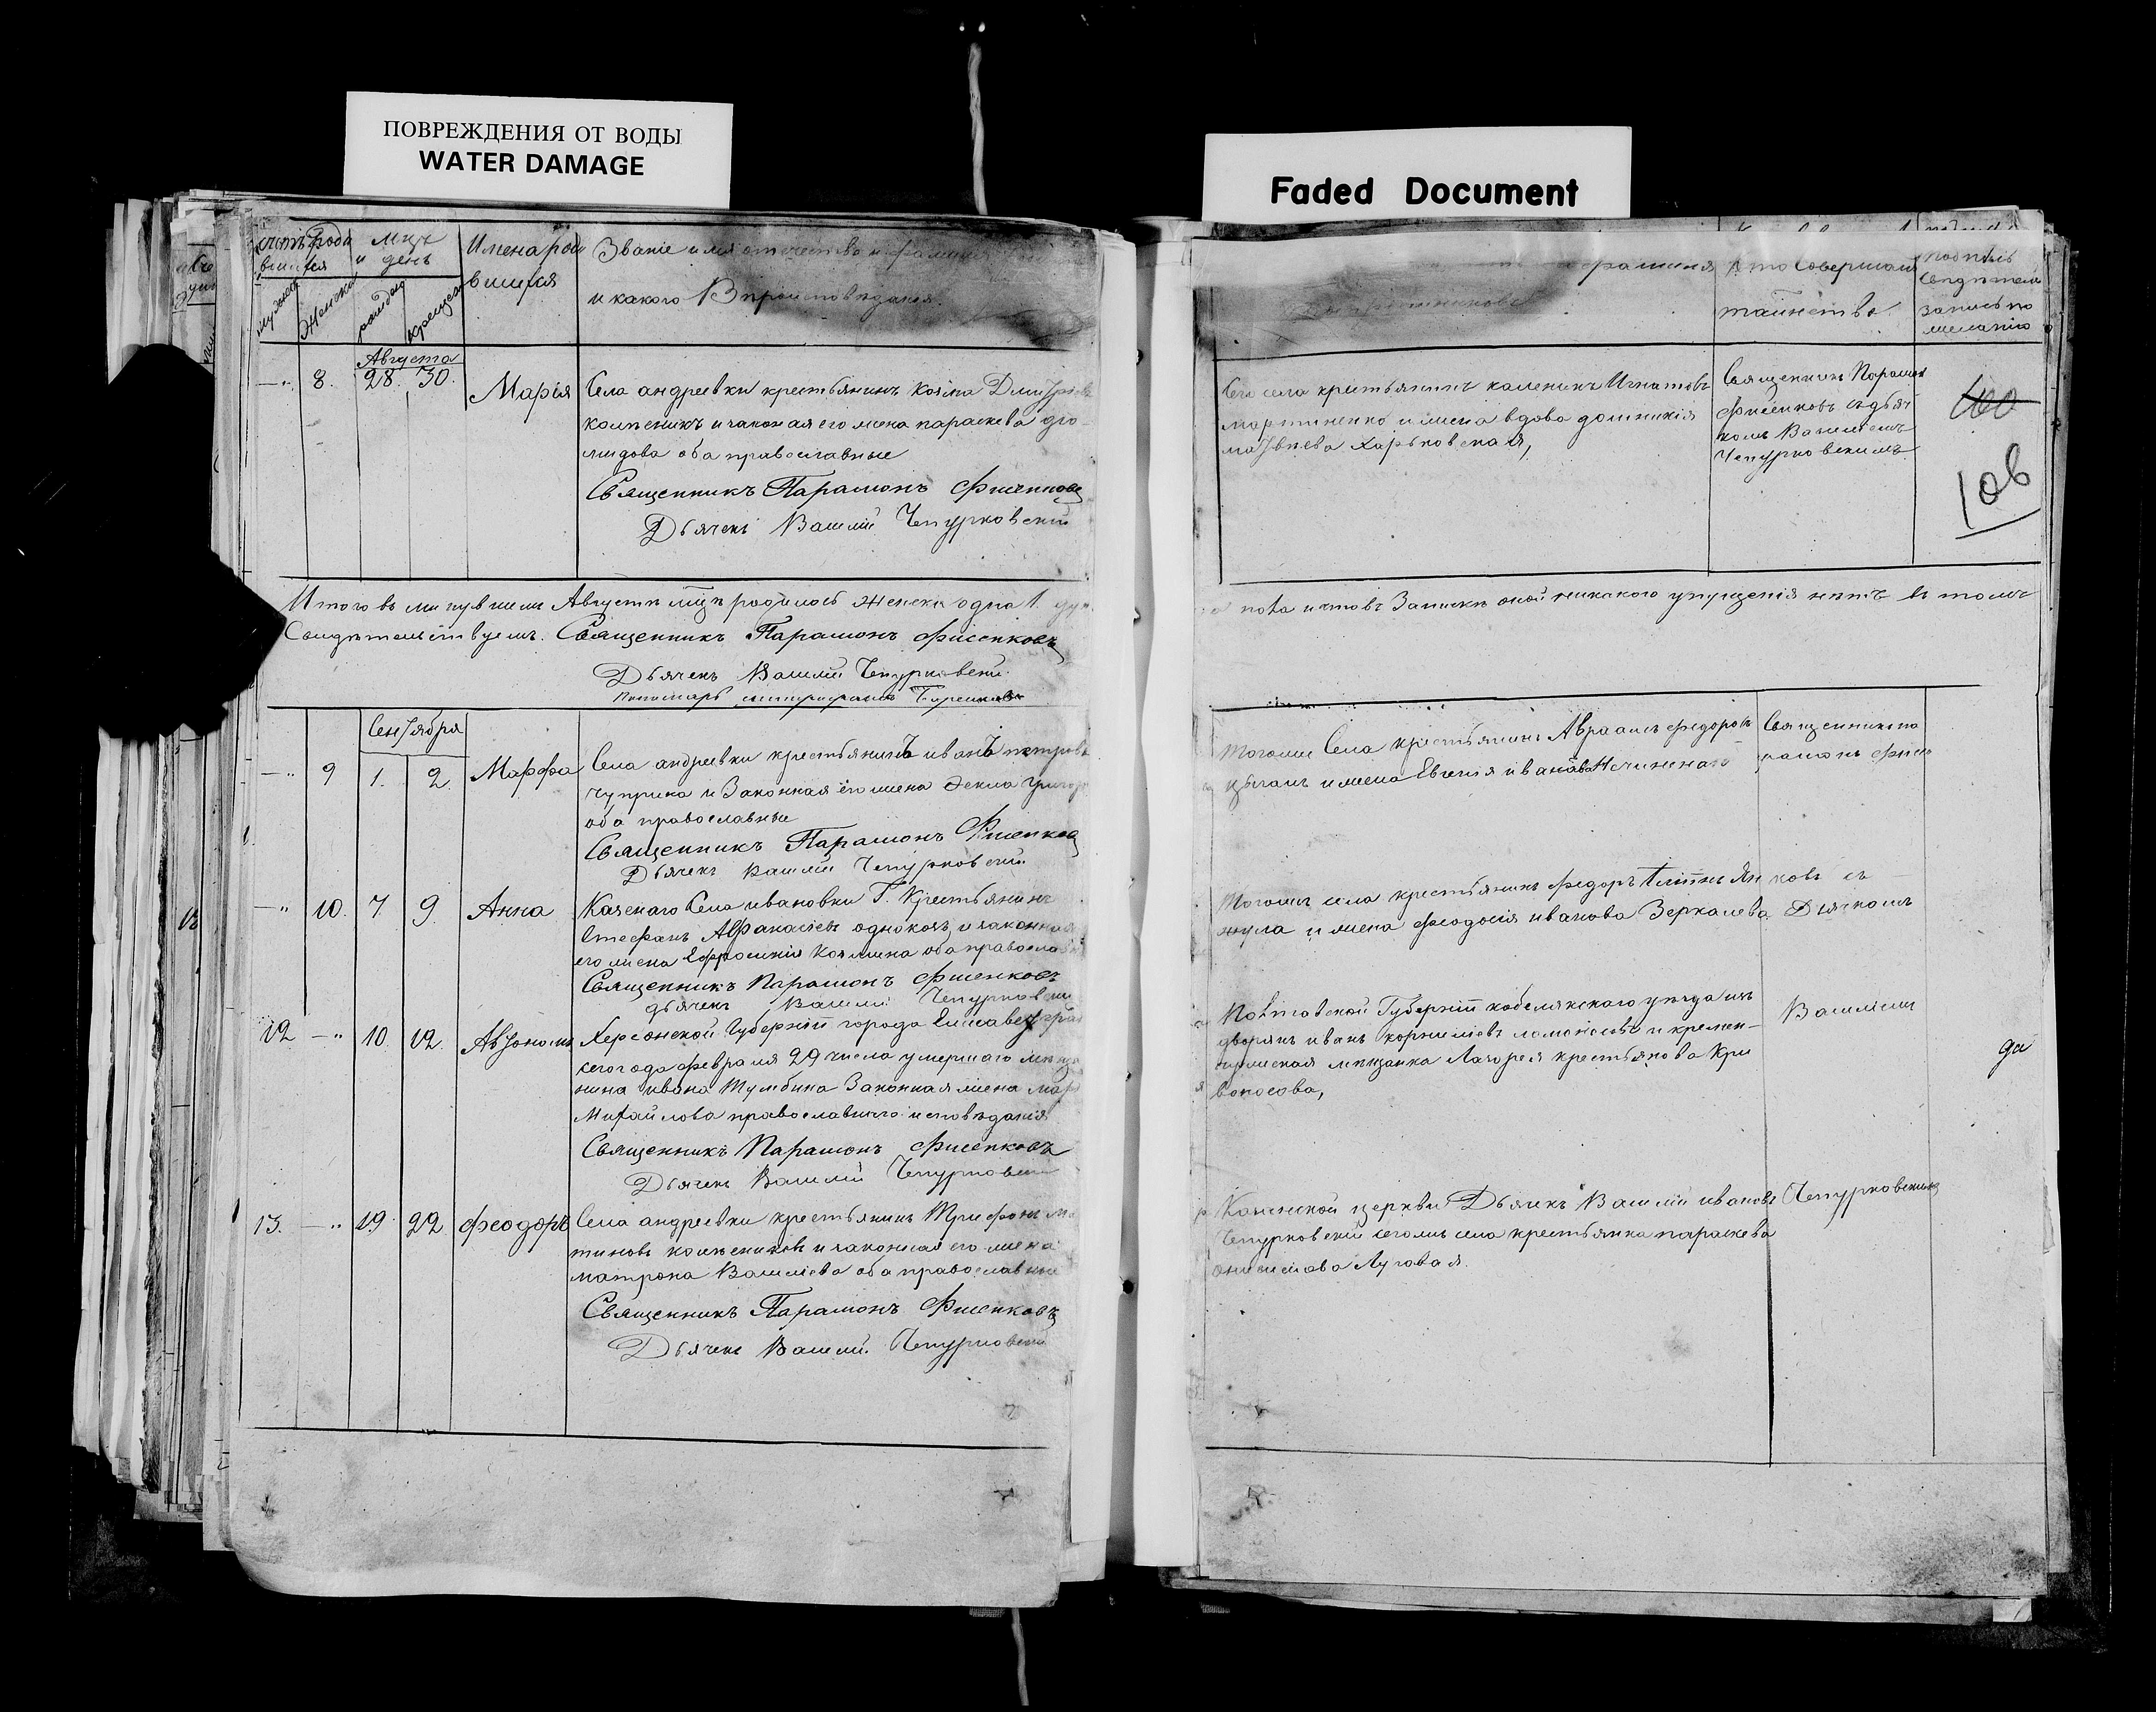 ПОВРЕЖДЕНИЯ ОТ ВОДЫ
WATER DAMAGE
Faded Document
мцъ
и день
Имена роди
вшихся
Званіе имя отечество и фамилия
и какого Вероисповеданія.
мужеск
Женска
рожден
крещен
Августа
8. 28. 30.
Марія
Села андреевки крестьянинъ Козма Дмитріевъ
колесникъ и законая его жена параскева дio-
мидова оба православные
Священникъ Парамонъ Фисенковъ
Дьячекъ Василій Чепурковскій
Итого въ минувшем Августѣ мцѣ родилось Женска одна 1.
Свидѣтельствуемъ. Священникъ Парамонъ Фисенковъ
Дьячекъ Василій Чепурковскій
Пономарь митрофанъ
Сентября
9 1. 2. Марфа
Села андреевки крестьянинъ иванъ петровъ
чуприна и Законная его жена Фекла Григор
оба православные
Священникъ Парамонъ Фисенковъ
Дьячекъ Василій Чепурковскій
10. 7 9. Анна
Казенаго Села ивановки Г. Крестьянинъ
Стефанъ Афанасіевъ однокозъ и законная
его жена Ефросинія Козмина оба православ
Священникъ Парамонъ Фисенковъ
дьячекъ Василій Чепурковскій
12 10. 12. Автономъ
Херсонской Губерніи города Елисаветград
сего года февраля 29 числа умершаго мѣща
нина ивана Тумбина Законная жена Мар
Михайлова православнаго исповѣданія
Священникъ Парамонъ Фисенковъ
Дьячекъ Василій Чепурковскій
13. 19. 22 феодоръ
Села андреевки крестьянинъ Трифонъ ма
тиновъ колесниковъ и законная его жена
матрона Василіева оба православные
Священникъ Парамонъ Фисенковъ
Дьячекъ Василій Чепурковскій
фамилия
Кто Совершалъ
таинство.
подпись
Свидѣтелей
записи по
желанію
Сего села крестьянинъ каленикъ Игнатовъ
мартиненко и жена вдова домникія
матвѣева Харьковская,
Священник Парамон
Фисенковъ съ дьяч
комъ Василіемъ
Чепурковскимъ
100
106
пола и что въ Запискѣ оной никакого упущенія нѣтъ въ томъ
Тогоже Села крестьянинъ Авраамъ федоровъ
цыганъ и жена Евгенія иванова Нечиненая
Священник па
рамонъ Фисе
Тогоже села крестьянинъ федоръ
жула и жена феодосія иванова Зеркалева
нковъ съ
Дьячкомъ
Полтавской Губерніи кобелякскаго уѣзда изъ
дворянъ иванъ корнилиевъ ламоносовъ и кремен-
чугская мѣщанка Лазорея крестьянова Кри
воносова,
Василіемъ
да
Казанской церкви Дьячекъ Василій ивановъ
Чепурковскій сегожъ села крестьянка параскева
онисимова Луговая.
Чепурковскимъ